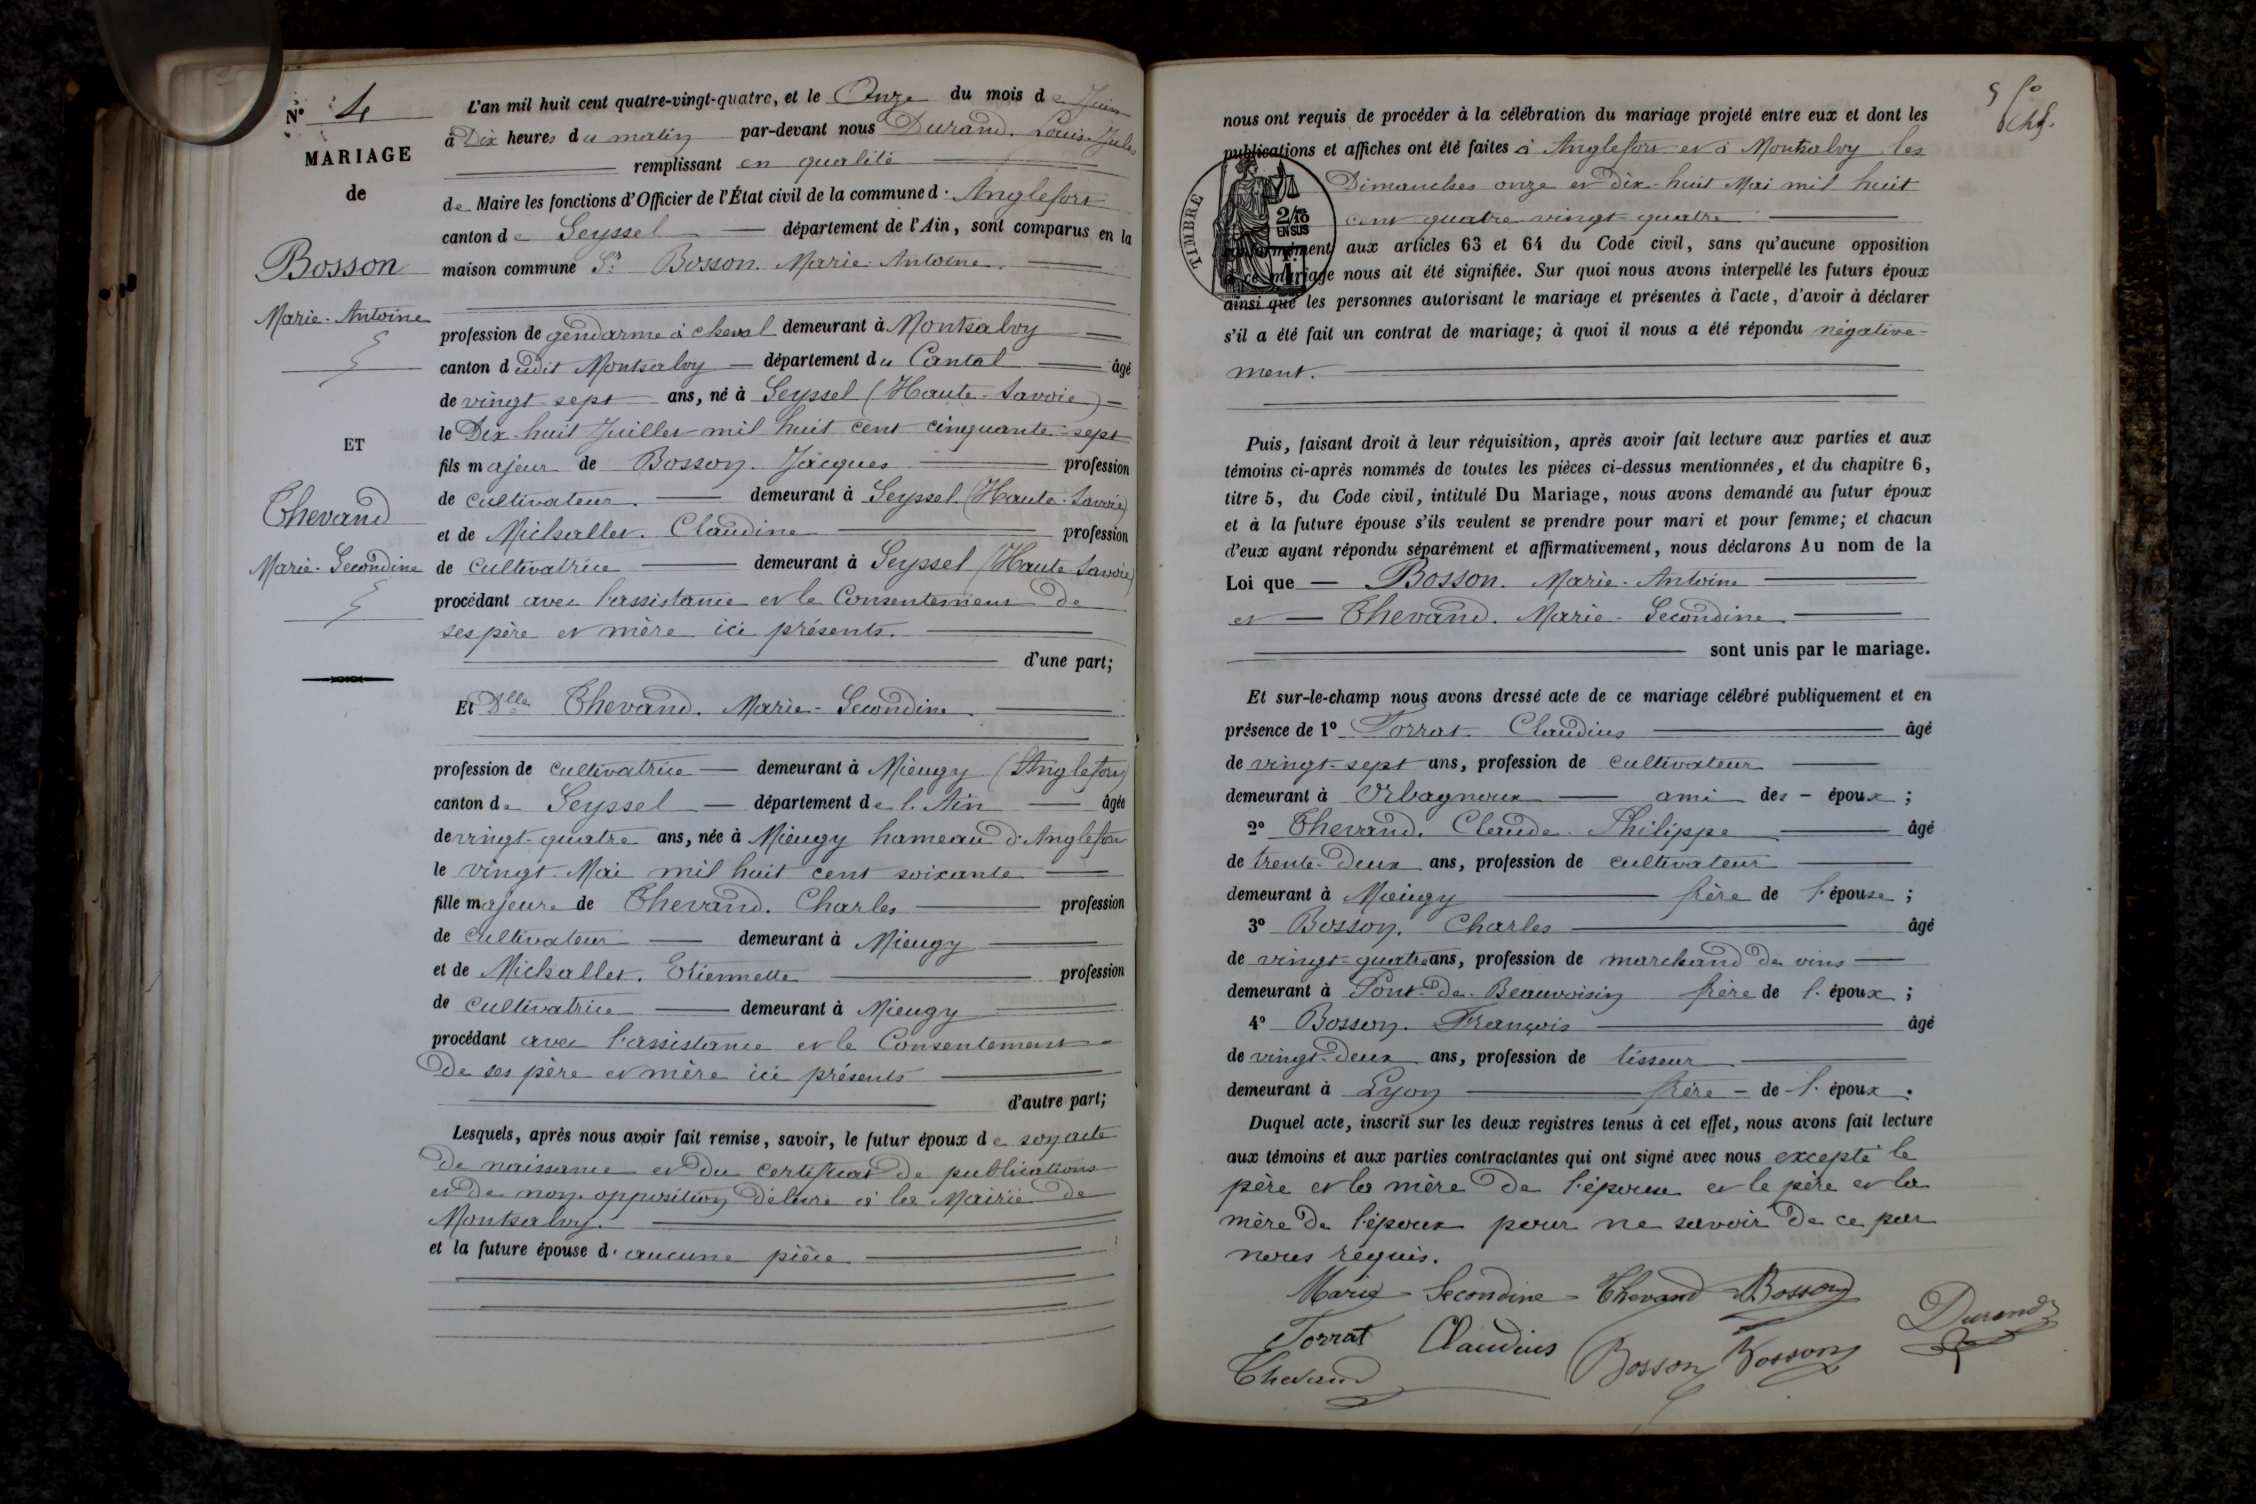 N° 4
MARIAGE
de
Bosson
Marie-Antoine
ET
Thevand
Marie-Secondine
L'an mil huit cent quatre-vingt-quatre, et le Onze du mois de Juin
à Dix heures du matin par-devant nous Durand. Louis-Jules
remplissant en qualité
de Maire les fonctions d'Officier de l'État civil de la commune d'Anglefort
canton de Seyssel département de l'Ain, sont comparus en la
maison commune Sr Bosson. Marie-Antoine.
profession de gendarme à cheval demeurant à Montsalvy
canton dudit Montsalvy département du Cantal âgé
de vingt-sept ans, né à Seyssel (Haute-Savoie)
le Dix-huit Juillet mil huit cent cinquante-sept
fils majeur de Bosson. Jacques profession
de cultivateur. demeurant à Seyssel (Haute-Savoie)
et de Michallet. Claudine profession
de cultivatrice demeurant à Seyssel (Haute Savoie)
procédant avec l'assistance et le Consentement de
ses père et mère ici présents.
d'une part;
Et Dlle Thevand. Marie-Secondine
profession de cultivatrice demeurant à Mieugy (Anglefort)
canton de Seyssel département de l'Ain âgée
de vingt-quatre ans, née à Mieugy hameau d'Anglefort
le vingt Mai mil huit cent soixante
fille majeure de Thevand. Charles profession
de cultivateur demeurant à Mieugy
et de Michallet. Etiennette profession
de cultivatrice demeurant à Mieugy
procédant avec l'assistance et le Consentement
de ses père et mère ici présents
d'autre part;
Lesquels, après nous avoir fait remise, savoir, le futur époux de son acte
de naissance et du certificat de publications
et de non-opposition délivré à la Mairie de
Montsalvy.
et la future épouse d'aucune pièce
5
nous ont requis de procéder à la célébration du mariage projeté entre eux et dont les
publications et affiches ont été faites à Anglefort et à Montsalvy les
Dimanches onze et dix-huit Mai mil huit
cent quatre-vingt-quatre
conformément aux articles 63 et 64 du Code civil, sans qu'aucune opposition
à ce mariage nous ait été signifiée. Sur quoi nous avons interpellé les futurs époux
ainsi que les personnes autorisant le mariage et présentes à l'acte, d'avoir à déclarer
s'il a été fait un contrat de mariage; à quoi il nous a été répondu négative-
ment.
TIMBRE
2/10
EN SUS
Puis, faisant droit à leur réquisition, après avoir fait lecture aux parties et aux
témoins ci-après nommés de toutes les pièces ci-dessus mentionnées, et du chapitre 6,
titre 5, du Code civil, intitulé Du Mariage, nous avons demandé au futur époux
et à la future épouse s'ils veulent se prendre pour mari et pour femme; et chacun
d'eux ayant répondu séparément et affirmativement, nous déclarons Au nom de la
Loi que Bosson. Marie-Antoine
et Thevand. Marie-Secondine
sont unis par le mariage.
Et sur-le-champ nous avons dressé acte de ce mariage célébré publiquement et en
présence de 1° Torrat Claudius âgé
de vingt-sept ans, profession de cultivateur
demeurant à Orbagnoux ami des époux;
2° Thevand. Claude Philippe âgé
de trente-deux ans, profession de cultivateur
demeurant à Mieugy frère de l'épouse;
3° Bosson. Charles âgé
de vingt-quatre ans, profession de marchand de vins
demeurant à Pont-de-Beauvoisin frère de l'époux;
4° Bosson. François âgé
de vingt-deux ans, profession de tisseur
demeurant à Lyon frère de l'époux.
Duquel acte, inscrit sur les deux registres tenus à cet effet, nous avons fait lecture
aux témoins et aux parties contractantes qui ont signé avec nous excepté le
père et la mère de l'épouse et le père et la
mère de l'époux pour ne savoir de ce par
nous requis.
Marie Secondine Thevand Bosson
Torrat Claudius Bosson Bosson Durand
Thevand